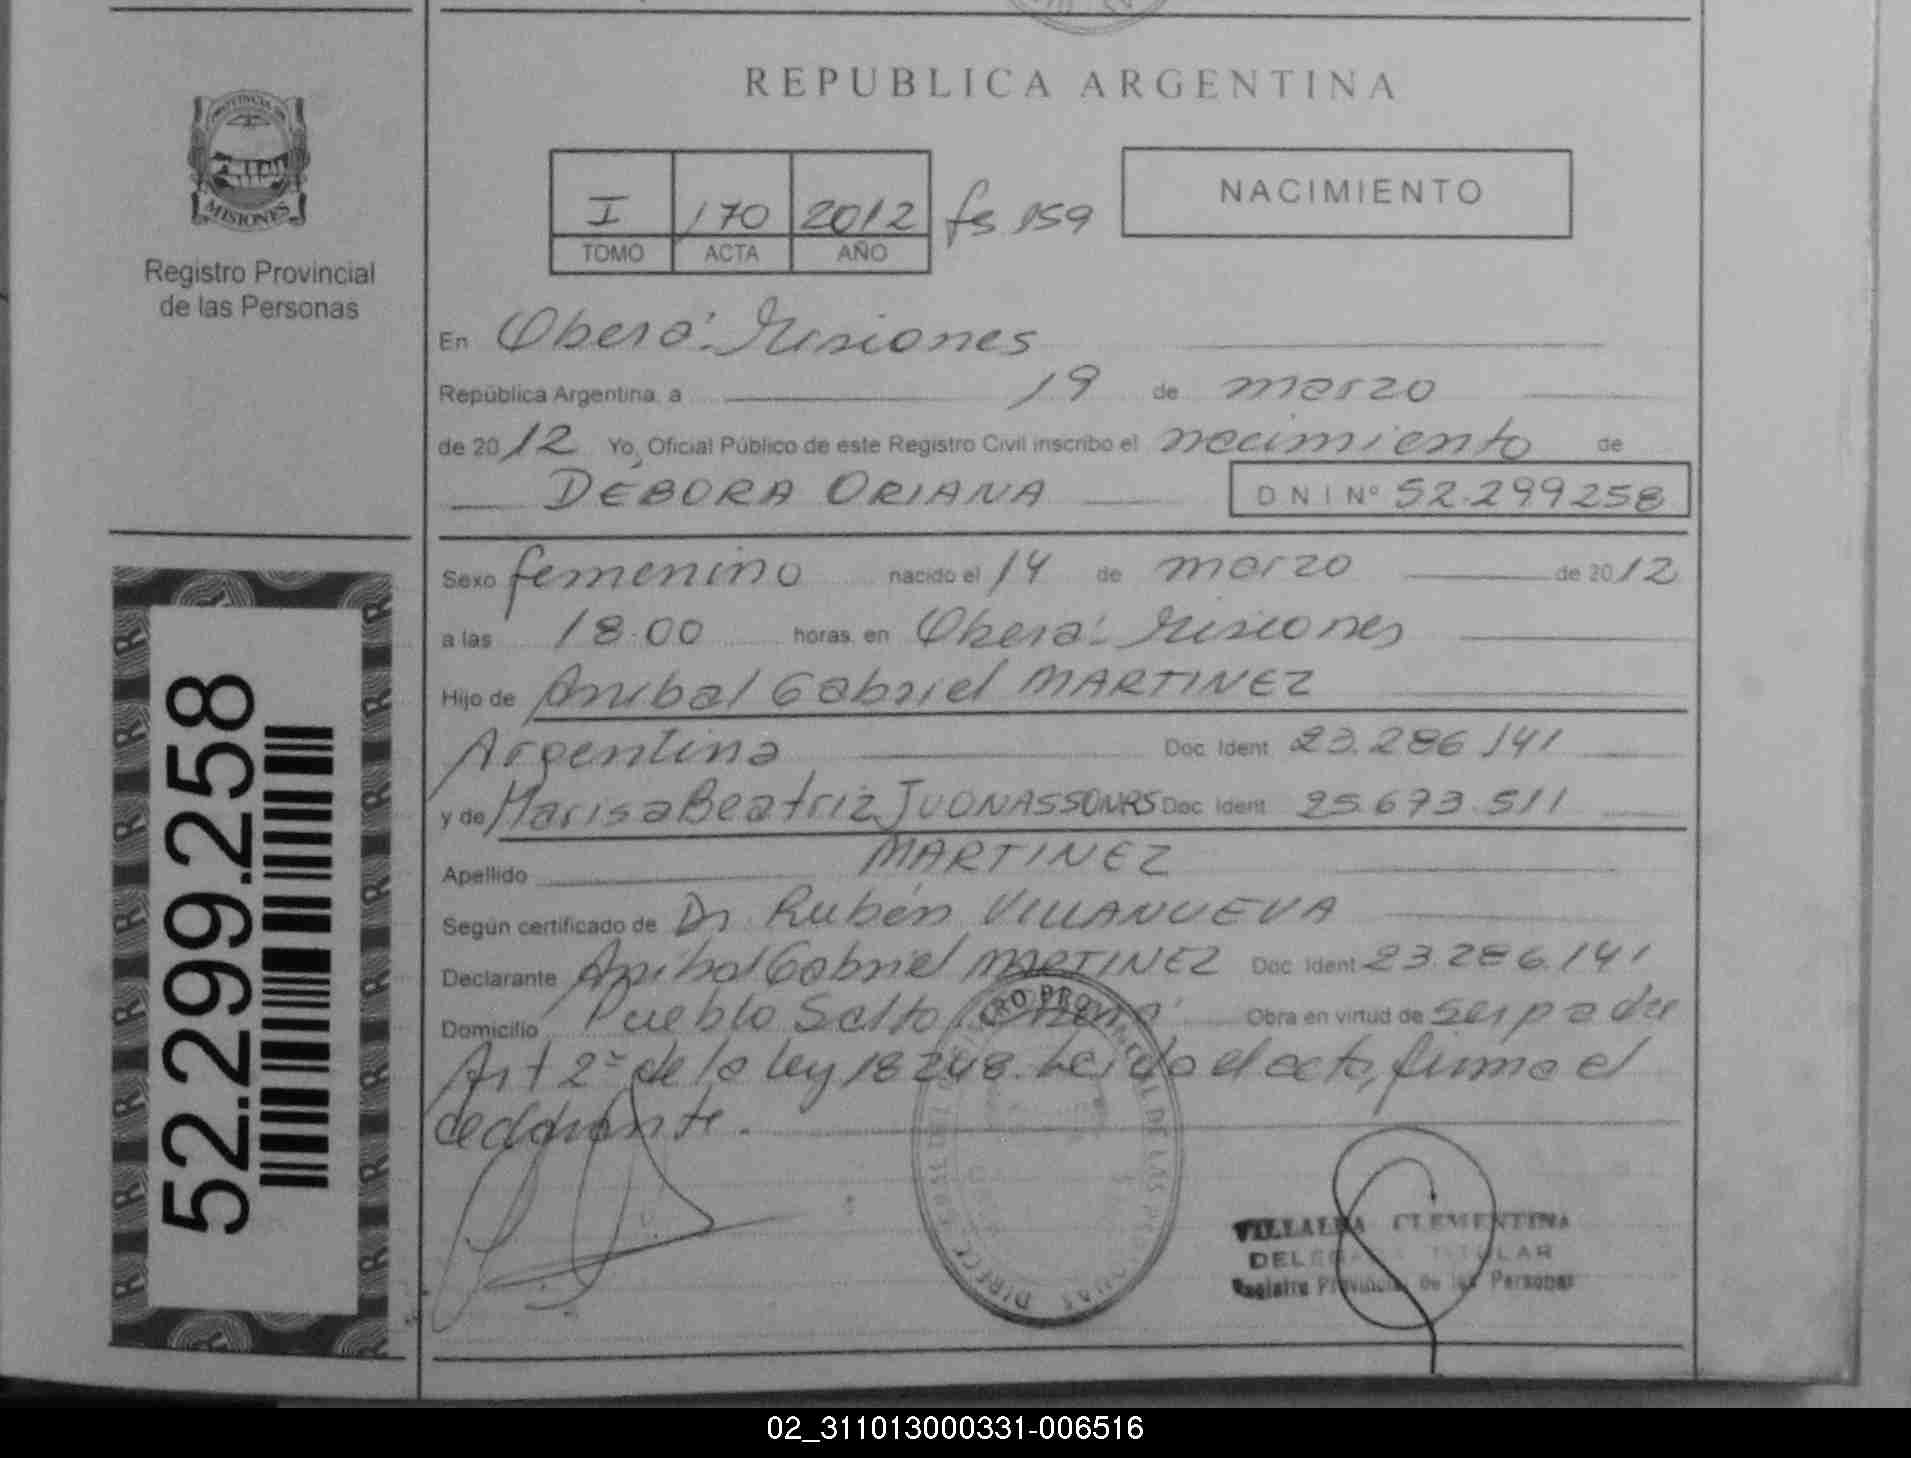 REPUBLICA ARGENTINA
PROVINCIA DE
MISIONES
Registro Provincial
de las Personas
I 170 2012 fs 159
TOMO ACTA AÑO
NACIMIENTO
En Oberá. Misiones
República Argentina, a 19 de marzo
de 2012 Yo, Oficial Público de este Registro Civil inscribo el nacimiento de
DÉBORA ORIANA DNI Nº 52.299258
Sexo femenino nacido el 14 de marzo de 2012
a las 18.00 horas, en Oberá. Misiones
Hijo de Anibal Gabriel MARTINEZ
Argentina Doc. Ident. 23.286.141
y de Marisa Beatriz Doc. Ident. 25.673.511
Apellido MARTINEZ
Según certificado de Dr. Rubén VILLANUEVA
Declarante Anibal Gabriel MARTINEZ Doc. Ident. 23.286.141
Domicilio Pueblo Salto Oberá Obra en virtud de ser padre
Art 2º de la ley 18248. Leído el acta, firma el
declarante.
VILLALBA CLEMENTINA
DELEGADA TITULAR
Registro Provincial de las Personas
52.299.258
02_311013000331-006516